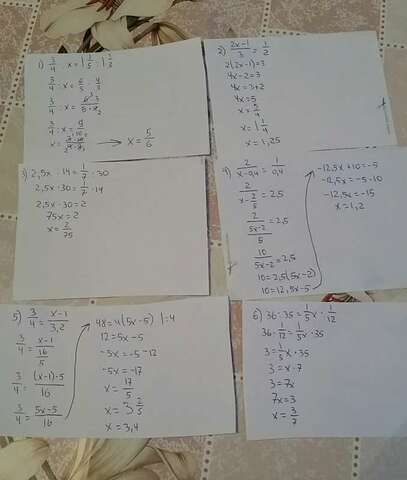 1) 3/4 : x = 1 1/5 : 1 1/3
3/4 : x = 6/5 · 3/4
3/4 : x = 9/10
→ x = 5/6
2) 2x-1/3 = 1/2
2(2x-1)=3
4x-2=3
4x=3+2
4x=5
x=5/4
x=1 1/4
x=1,25
3) 2,5x : 14 = 1/7 : 30
2,5x · 30 = 1/7 · 14
2,5x · 30 = 2
75x = 2
x = 2/75
4) 2/x-0,4 = 1/0,4
2/x-2/5 = 2,5
2/5x-2/5 = 2,5
10/5x-2 = 2,5
10=2,5(5x-2)
10=12,5x-5
-12,5x+10=-5
-12,5x=-5-10
-12,5x=-15
x=1,2
5) 3/4 = x-1/3,2
3/4 = x-1/16/5
3/4 = (x-1)·5/16
3/4 = 5x-5/16
48=4(5x-5) |:4
12=5x-5
-5x=-5-12
-5x=-17
x=17/5
x=3 2/5
x=3,4
6) 36:35=1/5x:1/12
36·1/12=1/5x·35
3=1/5x·35
3=x·7
3=7x
7x=3
x=3/7